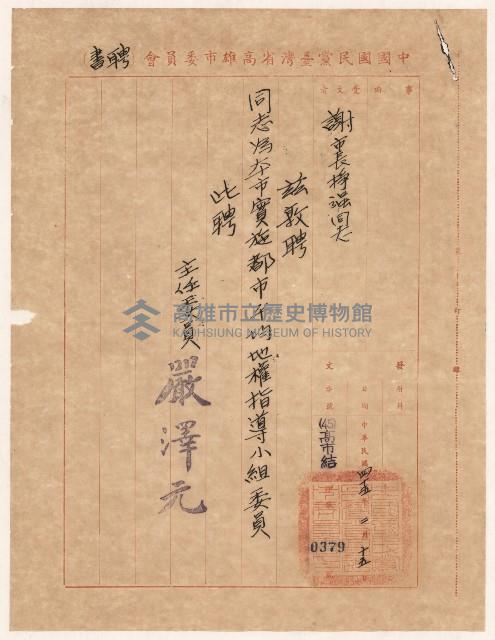 中國國民黨臺灣省高雄市委員會 聘書
事由
受文者
謝市長掙強同志
茲敦聘
同志為本市實施都市平均地權指導小組委員
此聘
主任委員 嚴澤元
發
附件
日期 中華民國四五年二月十五日
文
字號
(45)高市結
0379
高雄市立歷史博物館
KAOHSIUNG MUSEUM OF HISTORY